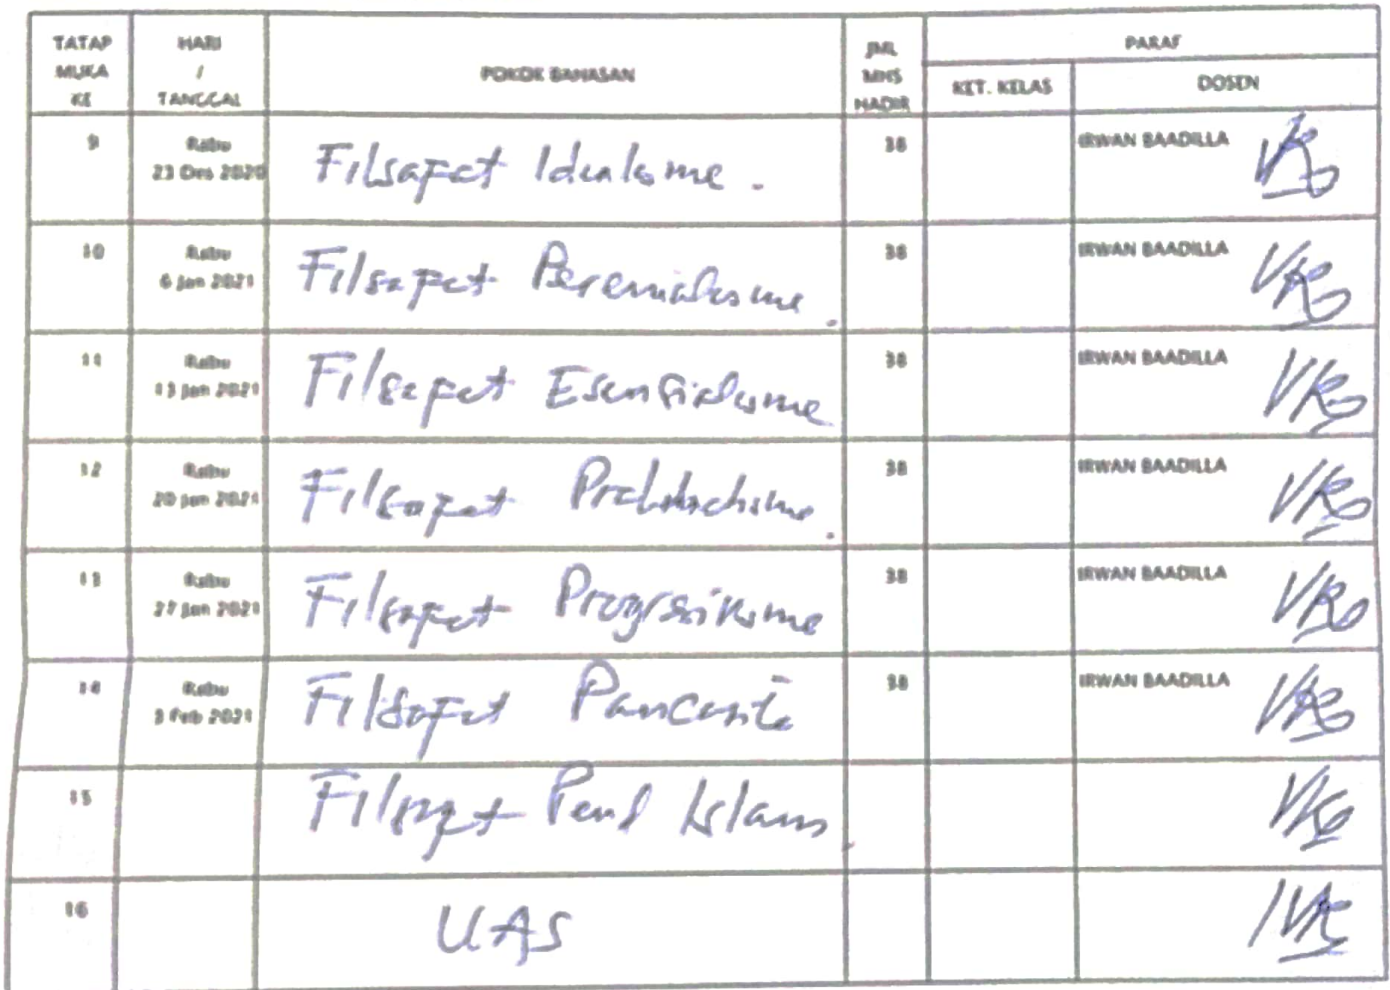 TATAP MUKA KE HARI / TANGGAL POKOK BAHASAN JML MHS HADIR PARAF
KET. KELAS DOSEN
9 Rabu 23 Des 2020 Filsapat Idealisme. 38 IRWAN BAADILLA
10 Rabu 6 Jan 2021 Filsapat Perenialisme. 38 IRWAN BAADILLA
11 Rabu 13 Jan 2021 Filsapat Esensialisme 38 IRWAN BAADILLA
12 Rabu 20 Jan 2021 Filsapat 38 IRWAN BAADILLA
13 Rabu 27 Jan 2021 Filsapat Progresivisme 38 IRWAN BAADILLA
14 Rabu 3 Feb 2021 Filsapat Pancasila 38 IRWAN BAADILLA
15 Filsapat Pend Islam.
16 UAS